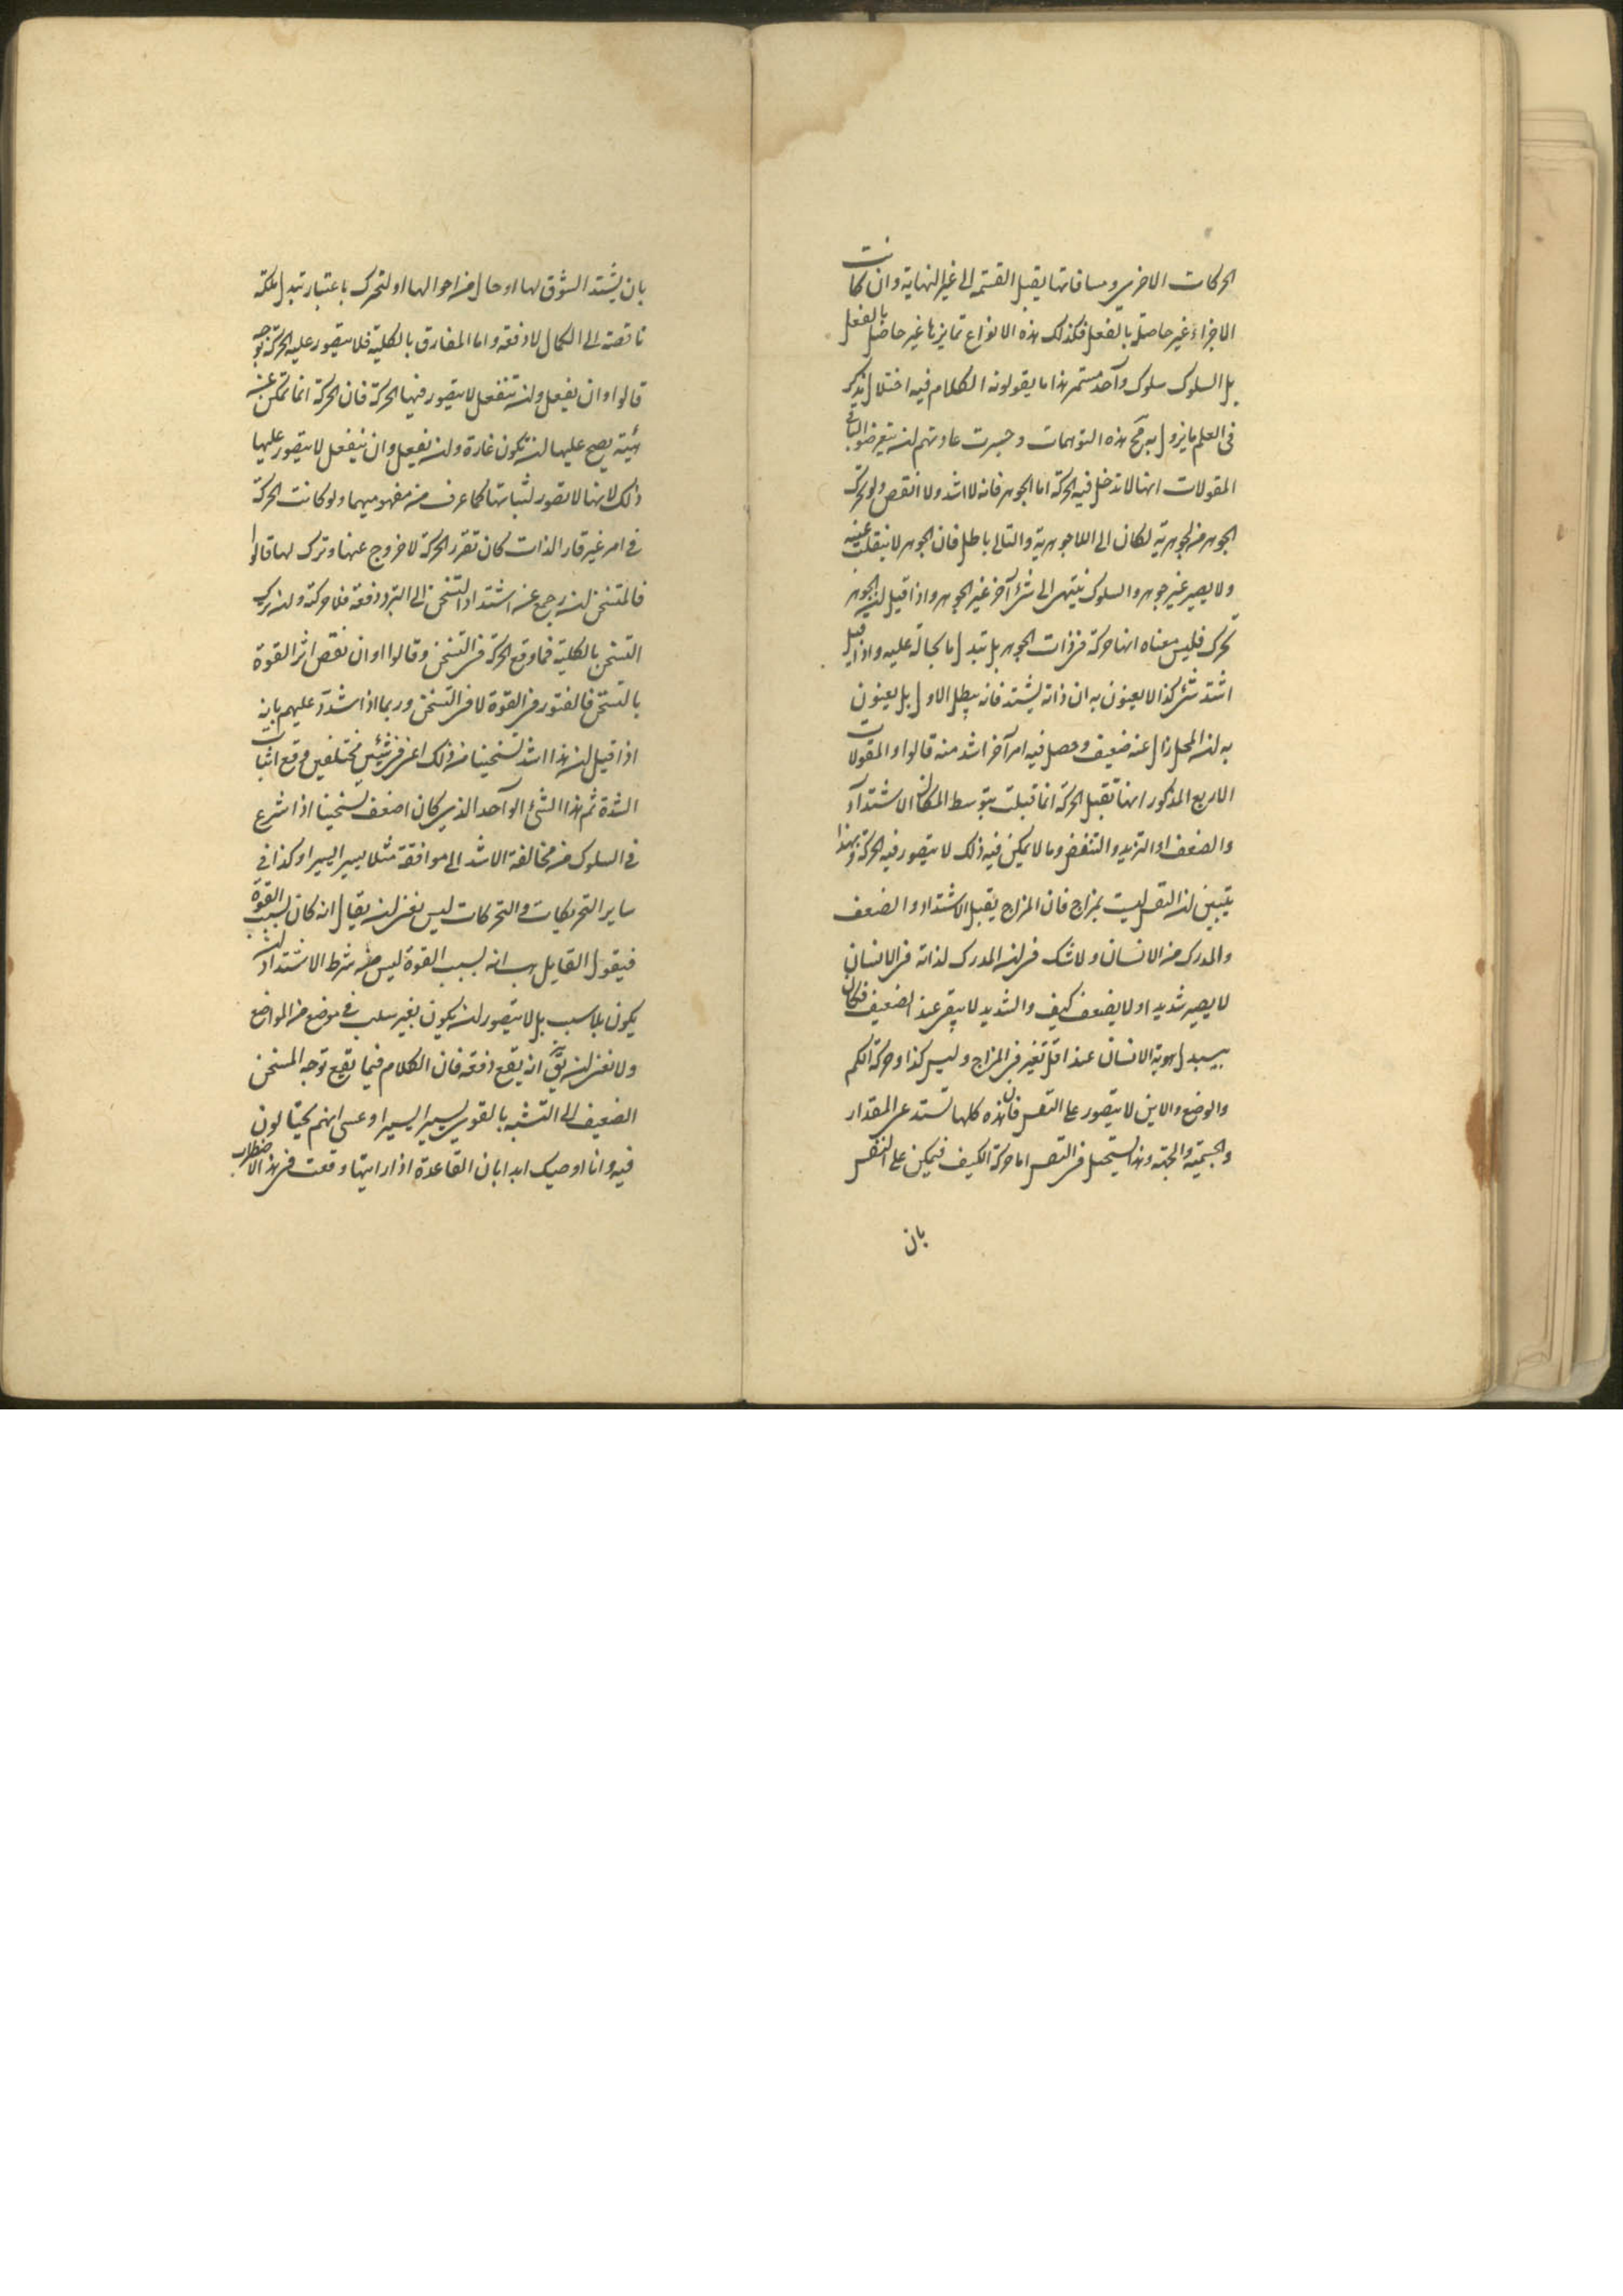 الحركات الاخرى ومسافاتها يقبل القسمة الى غير النهاية وان كانت
الاجزاء غير حاصلة بالفعل فكذلك هذه الانواع تمايزها غير حاصل بالفعل
بل السلوك سلوك واحد مستمر هذا ما يقولونه الكلام فيه اختلال يذكر
فى العلم ما يزول به مج هذه التوهمات وجرت عادتهم ان يتعرضوا لباقى
المقولات انها لا تدخل فيه الحركة اما الجوهر فانه لا اشد ولا انقص ولو تحرك
الجوهر من الجوهرية لكان الى اللاجوهرية والتالى باطل فان الجوهر لا ينقلب عينه
ولا يصير غير جوهر والسلوك ينتهى الى شئ آخر غير الجوهر واذا قيل ان الجوهر
تحرك فليس معناه انها حركة فى ذات الجوهر بل تبدل ما بحاله عليه واذا قيل
اشتد شئ كذا لا يعنون به ان ذاته يشتد فانه يبطل الاول بل يعنون
به ان المحل زال عنه ضعيف وحصل فيه امر آخر اشد منه قالوا والمقولات
الاربع المذكور انها تقبل الحركة انما قبلت بتوسط امكان الاشتداد
والضعف او التزيد والتنقص وما لا يمكن فيه ذلك لا يتصور فيه الحركة وبهذا
يتبين ان النفس ليست بمزاج فان المزاج يقبل الاشتداد والضعف
والمدرك من الانسان ولا شك فى ان المدرك لذاته فى الانسان
لا يصير شديدا ولا يضعف كيف والشديد لا يبقى عند الضعيف فكان
يتبدل هوية الانسان عند اقل تغير فى المزاج وليس كذا وحركة الكم
والوضع والاين لا يتصور على النفس فان هذه كلها تستدعى المقدار
والجسمية والجهة وهذا يستحيل فى النفس اما حركة الكيف فيمكن على النفس
بان
بان يشتد الشوق لها او حال من احوالها او لتحرك باعتبار تبدل ملكة
ناقصة الى الكمال لا دفعة واما المفارق بالكلية فلا يتصور عليه الحركة بوجه
قالوا وان يفعل وان ينفعل لا يتصور فيها الحركة فان الحركة انما تمكن عن
هيئة يصح عليها ان تكون قارة وان يفعل وان ينفعل لا يتصور عليها
ذلك لانها لا تصور لثباتها كما عرف من مفهوميهما ولو كانت الحركة
فى امر غير قار الذات كان تقرر الحركة لا خروج عنها وترك لها قالوا
فالمتسخن ان رجع عن اشتداد التسخن الى التبرد دفعة فلا حركة وان ترك
التسخن بالكلية فما وقع الحركة فى التسخن وقالوا وان نقص اثر القوة
بالتسخن فالفتور فى القوة لا فى التسخن وربما اذا شدد عليهم بانه
اذا قيل ان هذا اشد تسخينا من ذلك اعنى فى شيئين مختلفين وقع اثبات
الشدة ثم هذا الشئ الواحد الذى كان اضعف تسخينا اذا شرع
فى السلوك من مخالفة الاشد الى موافقة مثلا يسيرا يسيرا وكذا فى
ساير التحريكات والتحركات ليس يغنى ان يقال انه كان بسبب القوة
فيقول القايل هب انه بسبب القوة ليس من شرط الاشتداد ان
يكون بلا سبب بل لا يتصور ان يكون بغير سبب فى موضع من المواضع
ولا يغنى ان يق انه يقع دفعة فان الكلام فيما يقع توجه المسخن
الضعيف الى التشبه بالقوى يسيرا يسيرا وعسى انهم يحتالون
فيه وانا اوصيك ابدا بان القاعدة اذا رايتها وقعت فى هذا الاضطراب